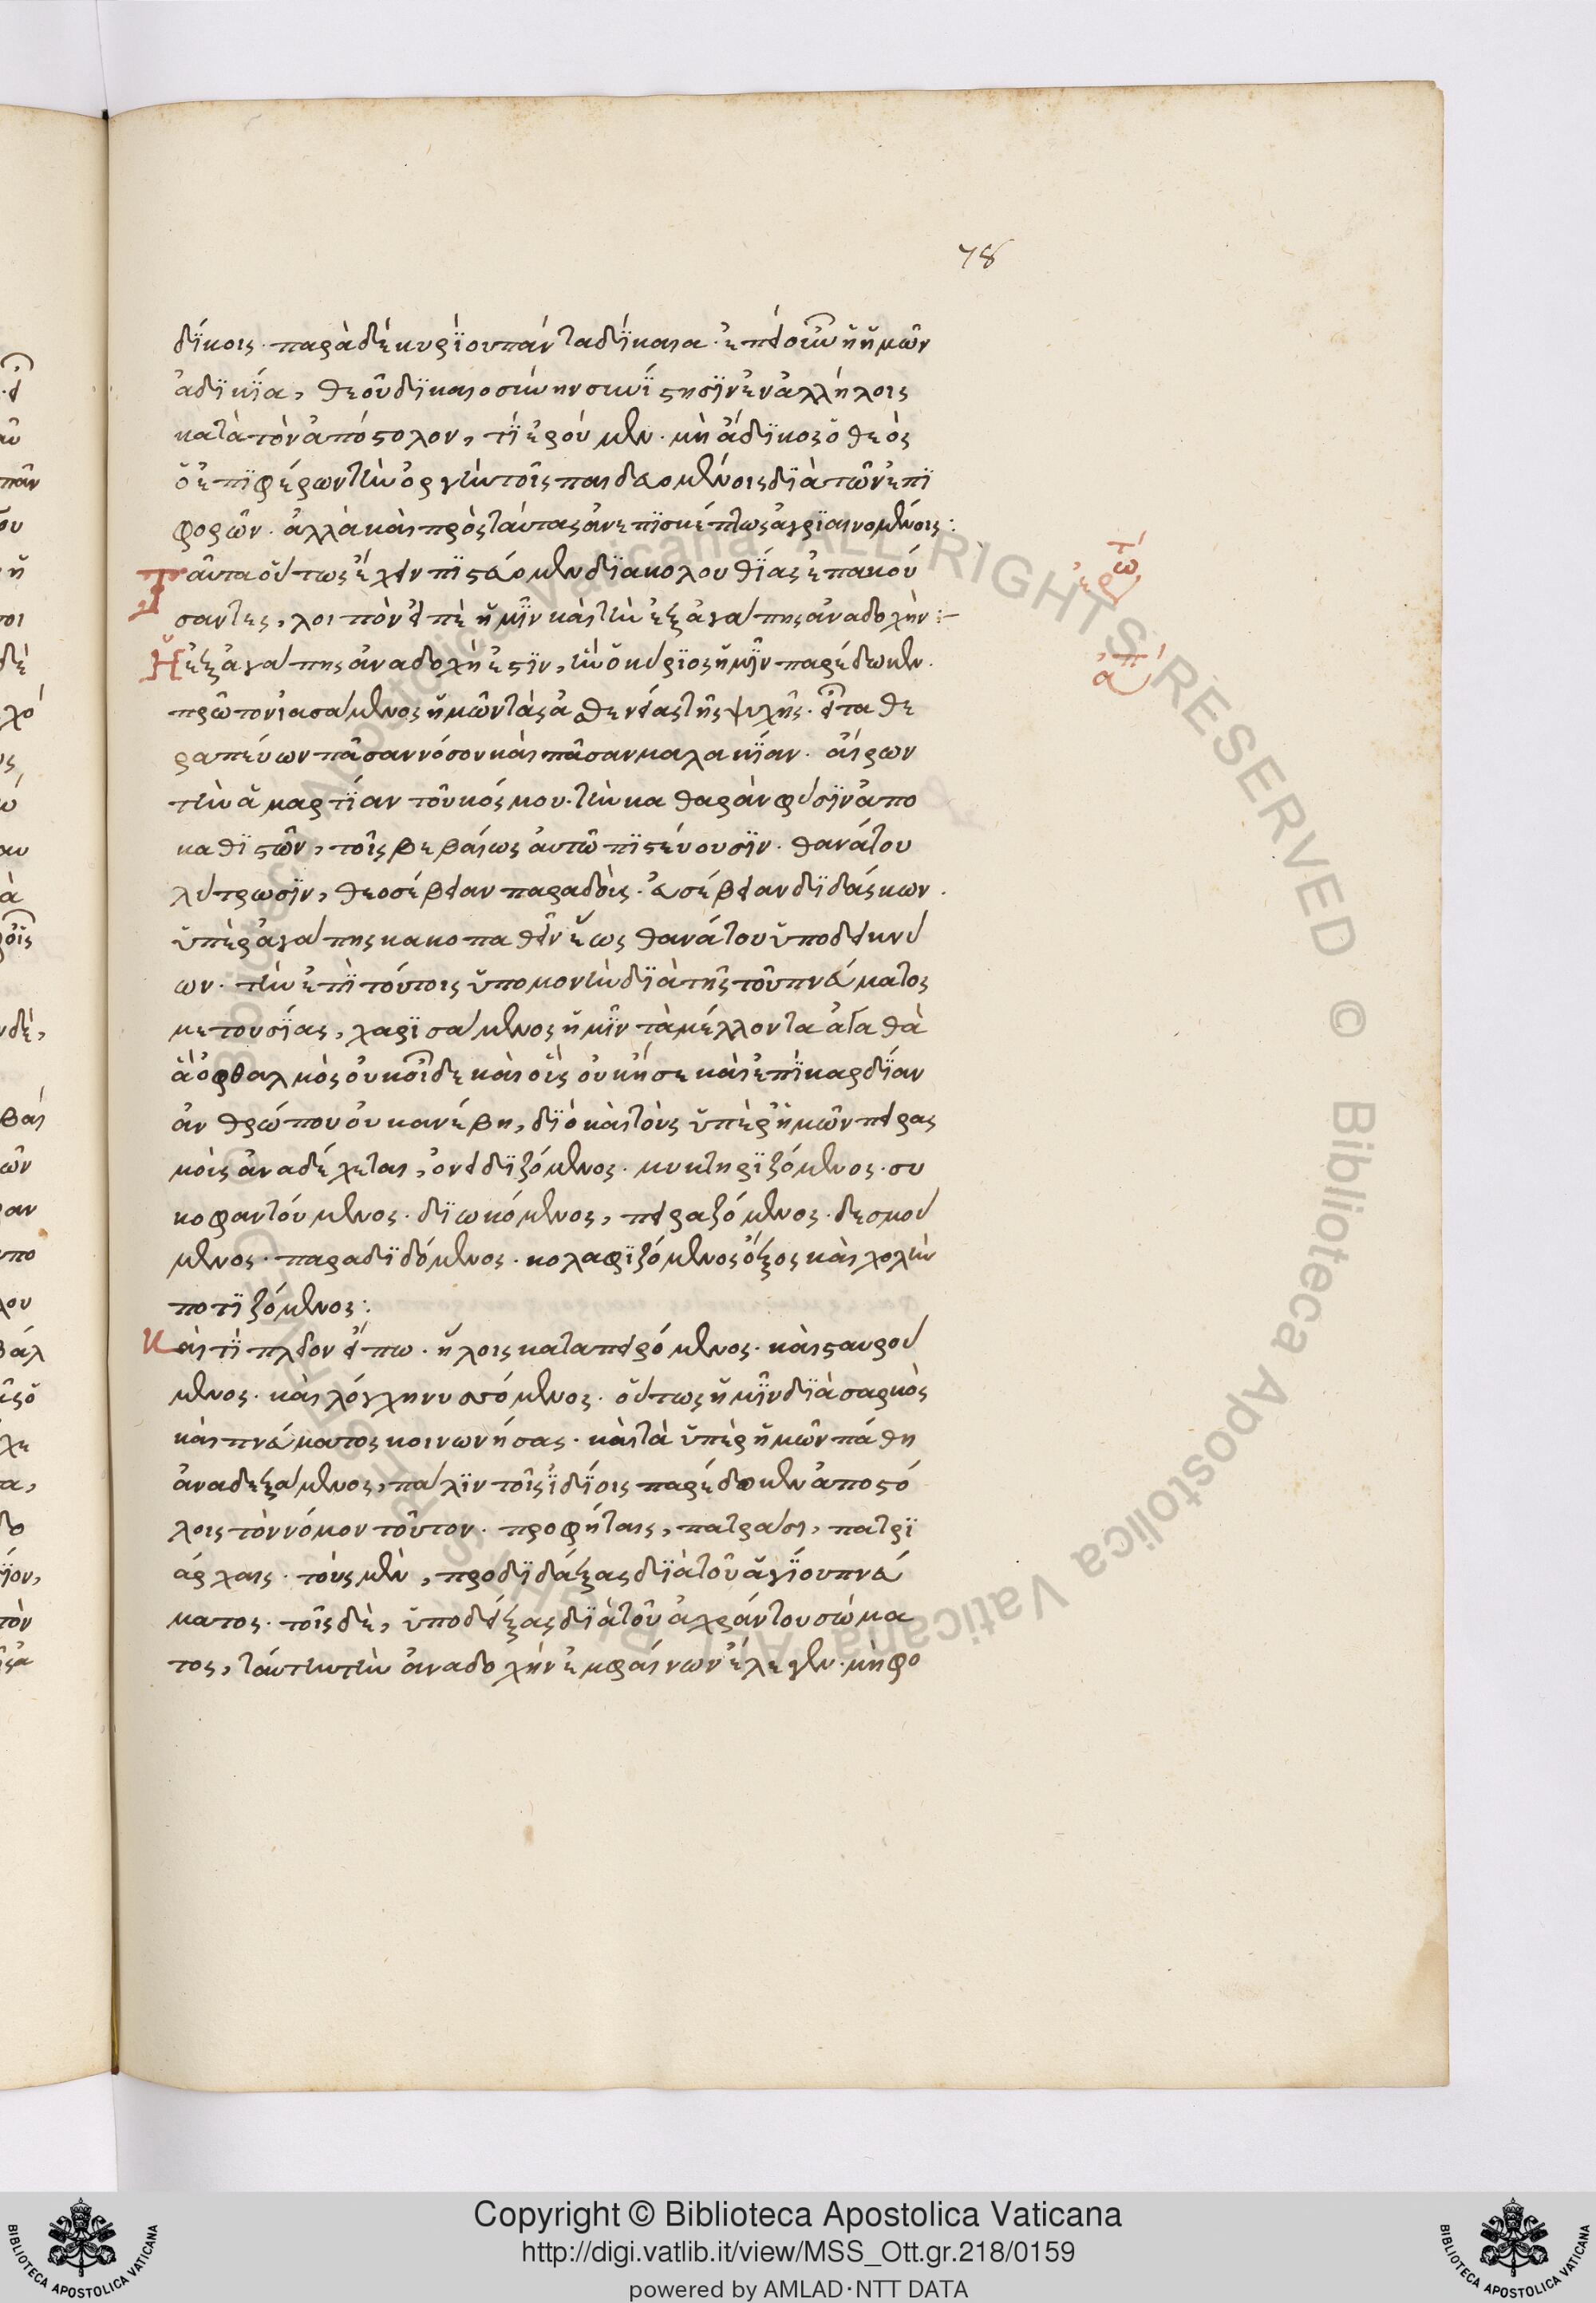 78
δίκοις· παρὰ δὲ κυρίου πάντα δίκαια· ἐπεὶ οὖν ἡ ἡμῶν
ἀδικία, θεοῦ δικαιοσύνην συνίστησιν ἐν ἀλλήλοις
κατὰ τὸν ἀπόστολον, τί ἐροῦμεν· μὴ ἄδικος ὁ θεὸς
ὁ ἐπιφέρων τὴν ὀργὴν τοῖς παιδευομένοις διὰ τῶν ἐπι
φορῶν· ἀλλὰ καὶ πρὸς ταύτας ἀνεπισκέπτως ἀγριαινομένοις:
Ταῦτα οὕτως ἔχειν πιστεύομεν διακολουθίας ἐπακού
σαντες, λοιπὸν εἰπὲ ἡμῖν καὶ τὴν ἐξ ἀγάπης ἀναδοχὴν:-
Ἡ ἐξ ἀγάπης ἀναδοχὴ ἐστιν, ἣν ὁ κύριος ἡμῖν παρέδωκεν·
πρῶτον ἰασάμενος ἡμῶν τὰς ἀσθενείας τῆς ψυχῆς· εἶτα θε
ραπεύων πᾶσαν νόσον καὶ πᾶσαν μαλακίαν· αἴρων
τὴν ἁμαρτίαν τοῦ κόσμου· τὴν καθαρὰν φύσιν ἀπο
καθιστῶν, τοῖς βεβαίως αὐτῷ πιστεύουσιν· θανάτου
λύτρωσιν, θεοσέβειαν παραδοὺς· εὐσέβειαν διδάσκων·
ὑπὲρ ἀγάπης κακοπαθεῖν ἕως θανάτου ὑποδεικνύ
ων· τὴν ἐπὶ τούτοις ὑπομονὴν διὰ τῆς τοῦ πνεύματος
μετουσίας, χαρισάμενος ἡμῖν τὰ μέλλοντα ἀγαθὰ
ἃ ὀφθαλμὸς οὐκ οἶδε καὶ οὖς οὐκ ἤ̓σε καὶ ἐπὶ καρδίαν
ἀνθρώπου οὐκ ἀνέβη, διὸ καὶ τοὺς ὑπὲρ ἡμῶν πειρας
μοὺς ἀναδέχεται, ὀνειδιζόμενος· μυκτηριζόμενος· συ
κοφαντούμενος· διωκόμενος, πειραζόμενος· δεσμού
μενος· παραδιδόμενος· κολαφιζόμενος ὄξος καὶ χολὴν
ποτιζόμενος:
Καὶ τί πλεῖον εἴπω· ἥλοις καταπειρόμενος· καὶ σταυρού
μενος· καὶ λόγχῃ νυσσόμενος· οὕτως ἡμῖν διὰ σαρκὸς
καὶ πνεύματος κοινωνήσας· καὶ τὰ ὑπὲρ ἡμῶν πάθη
ἀναδεξάμενος, πάλιν τοῖς ἰδίοις παρέδωκεν ἀποστό
λοις τὸν νόμον τοῦτον· προφήταις, πατράσι, πατρι
άρχαις· τοὺς μὲν, προδιδάξας διὰ τοῦ ἁγίου πνεύ
ματος· τοῖς δὲ, ὑποδείξας διὰ τοῦ ἀχράντου σώμα
τος, ταύτην τὴν ἀναδοχὴν ἐμφαίνων ἔλεγεν· μὴ φο
ἐρώτ
ἀπ
Copyright © Biblioteca Apostolica Vaticana
http://digi.vatlib.it/view/MSS_Ott.gr.218/0159
powered by AMLAD·NTT DATA
BIBLIOTECA APOSTOLICA VATICANA
BIBLIOTECA APOSTOLICA VATICANA